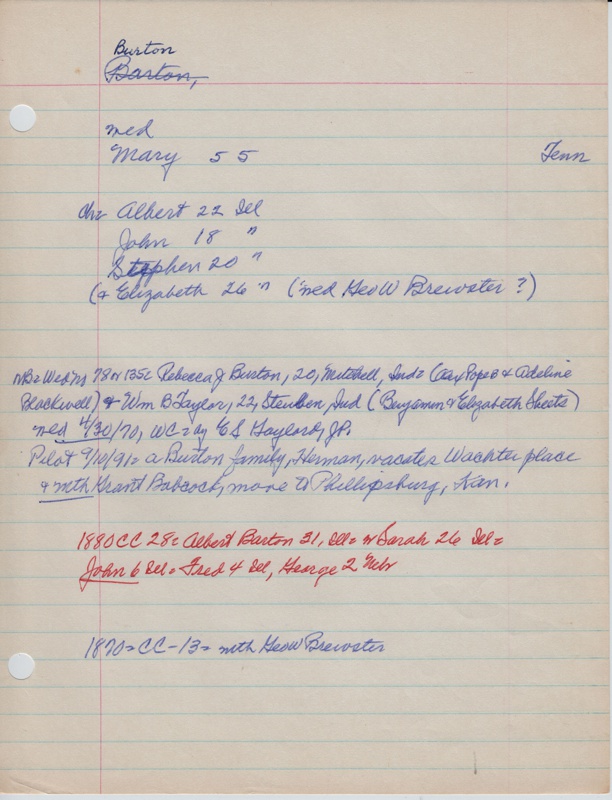 Burton
Barton,
med
Mary 55 Tenn
ch= Albert 22 Ill
John 18 "
Stephen 20 "
(& Elizabeth 26 " (med Geo W Brewster ?)
NB= Wed 78 or 135= Rebecca J Burton, 20, Mitchell, Ind= (Pope B & Adeline
Blackwell) & Wm B Taylor, 22, Steuben, Ind (Benjamin & Elizabeth Sheets)
med 4/30/70, WC= E S Gaylord, JP.
Pilot 9/10/91= a Burton family, Herman, vacates Wachter place
& mth Grant Babcock, move to Phillipsburg, Kan.
1880 CC 28= Albert Barton 31, Ill= w Sarah 26 Ill=
John 6 Ill= Fred 4 Ill, George 2 Nebr
1870= CC-13= mth Geo W Brewster